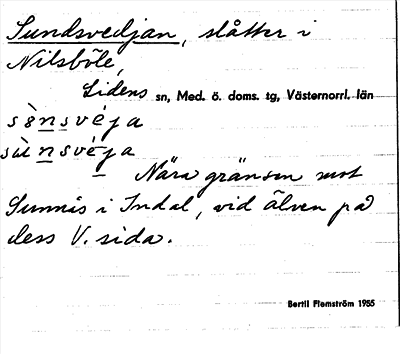 Sundsvedjan, slåtter i
Nilsböle,
Lidens sn, Med. ö. doms. tg, Västernorrl. län
sùnsvéja
Nära gränsen mot
Sunnås i Indal, vid älven på
dess V. sida.
Bertil Flemström 1955